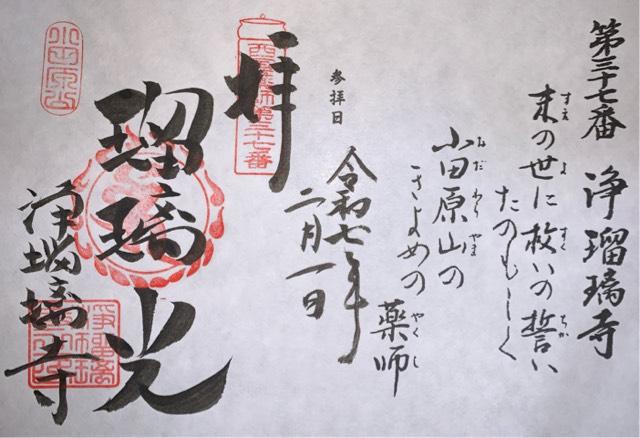 第三十七番 浄瑠璃寺
末の世に救いの誓い
すえ よ すく ちかい
たのもしく
小田原山の
おだわらやま
きよめの
薬師
やくし
参拝日
令和七年
二月一日
拝
西国薬師第三十七番
瑠璃光
小田原山
浄瑠璃寺